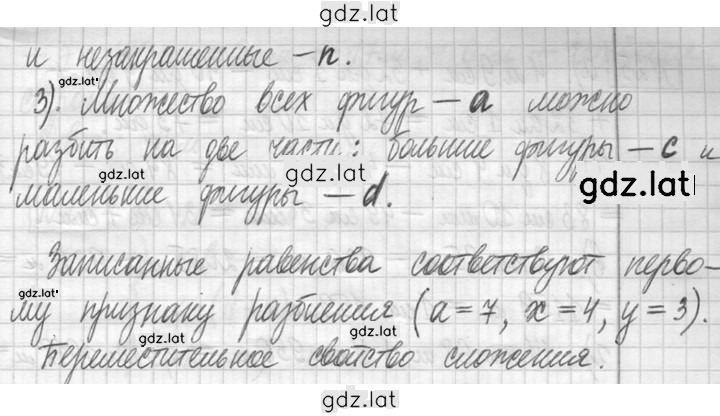 gdz.lat
и незакрашенные – n.
gdz.lat
3). Множество всех фигур – a можно
разбить на две части: большие фигуры – c и
gdz.lat
gdz.lat
gdz.lat
маленькие фигуры – d.
Записанные равенства соответствуют перво-
gdz.lat
му признаку разбиения (a = 7, x = 4, y = 3).
gdz.lat
gdz.lat
Переместительное свойство сложения.
gdz.lat